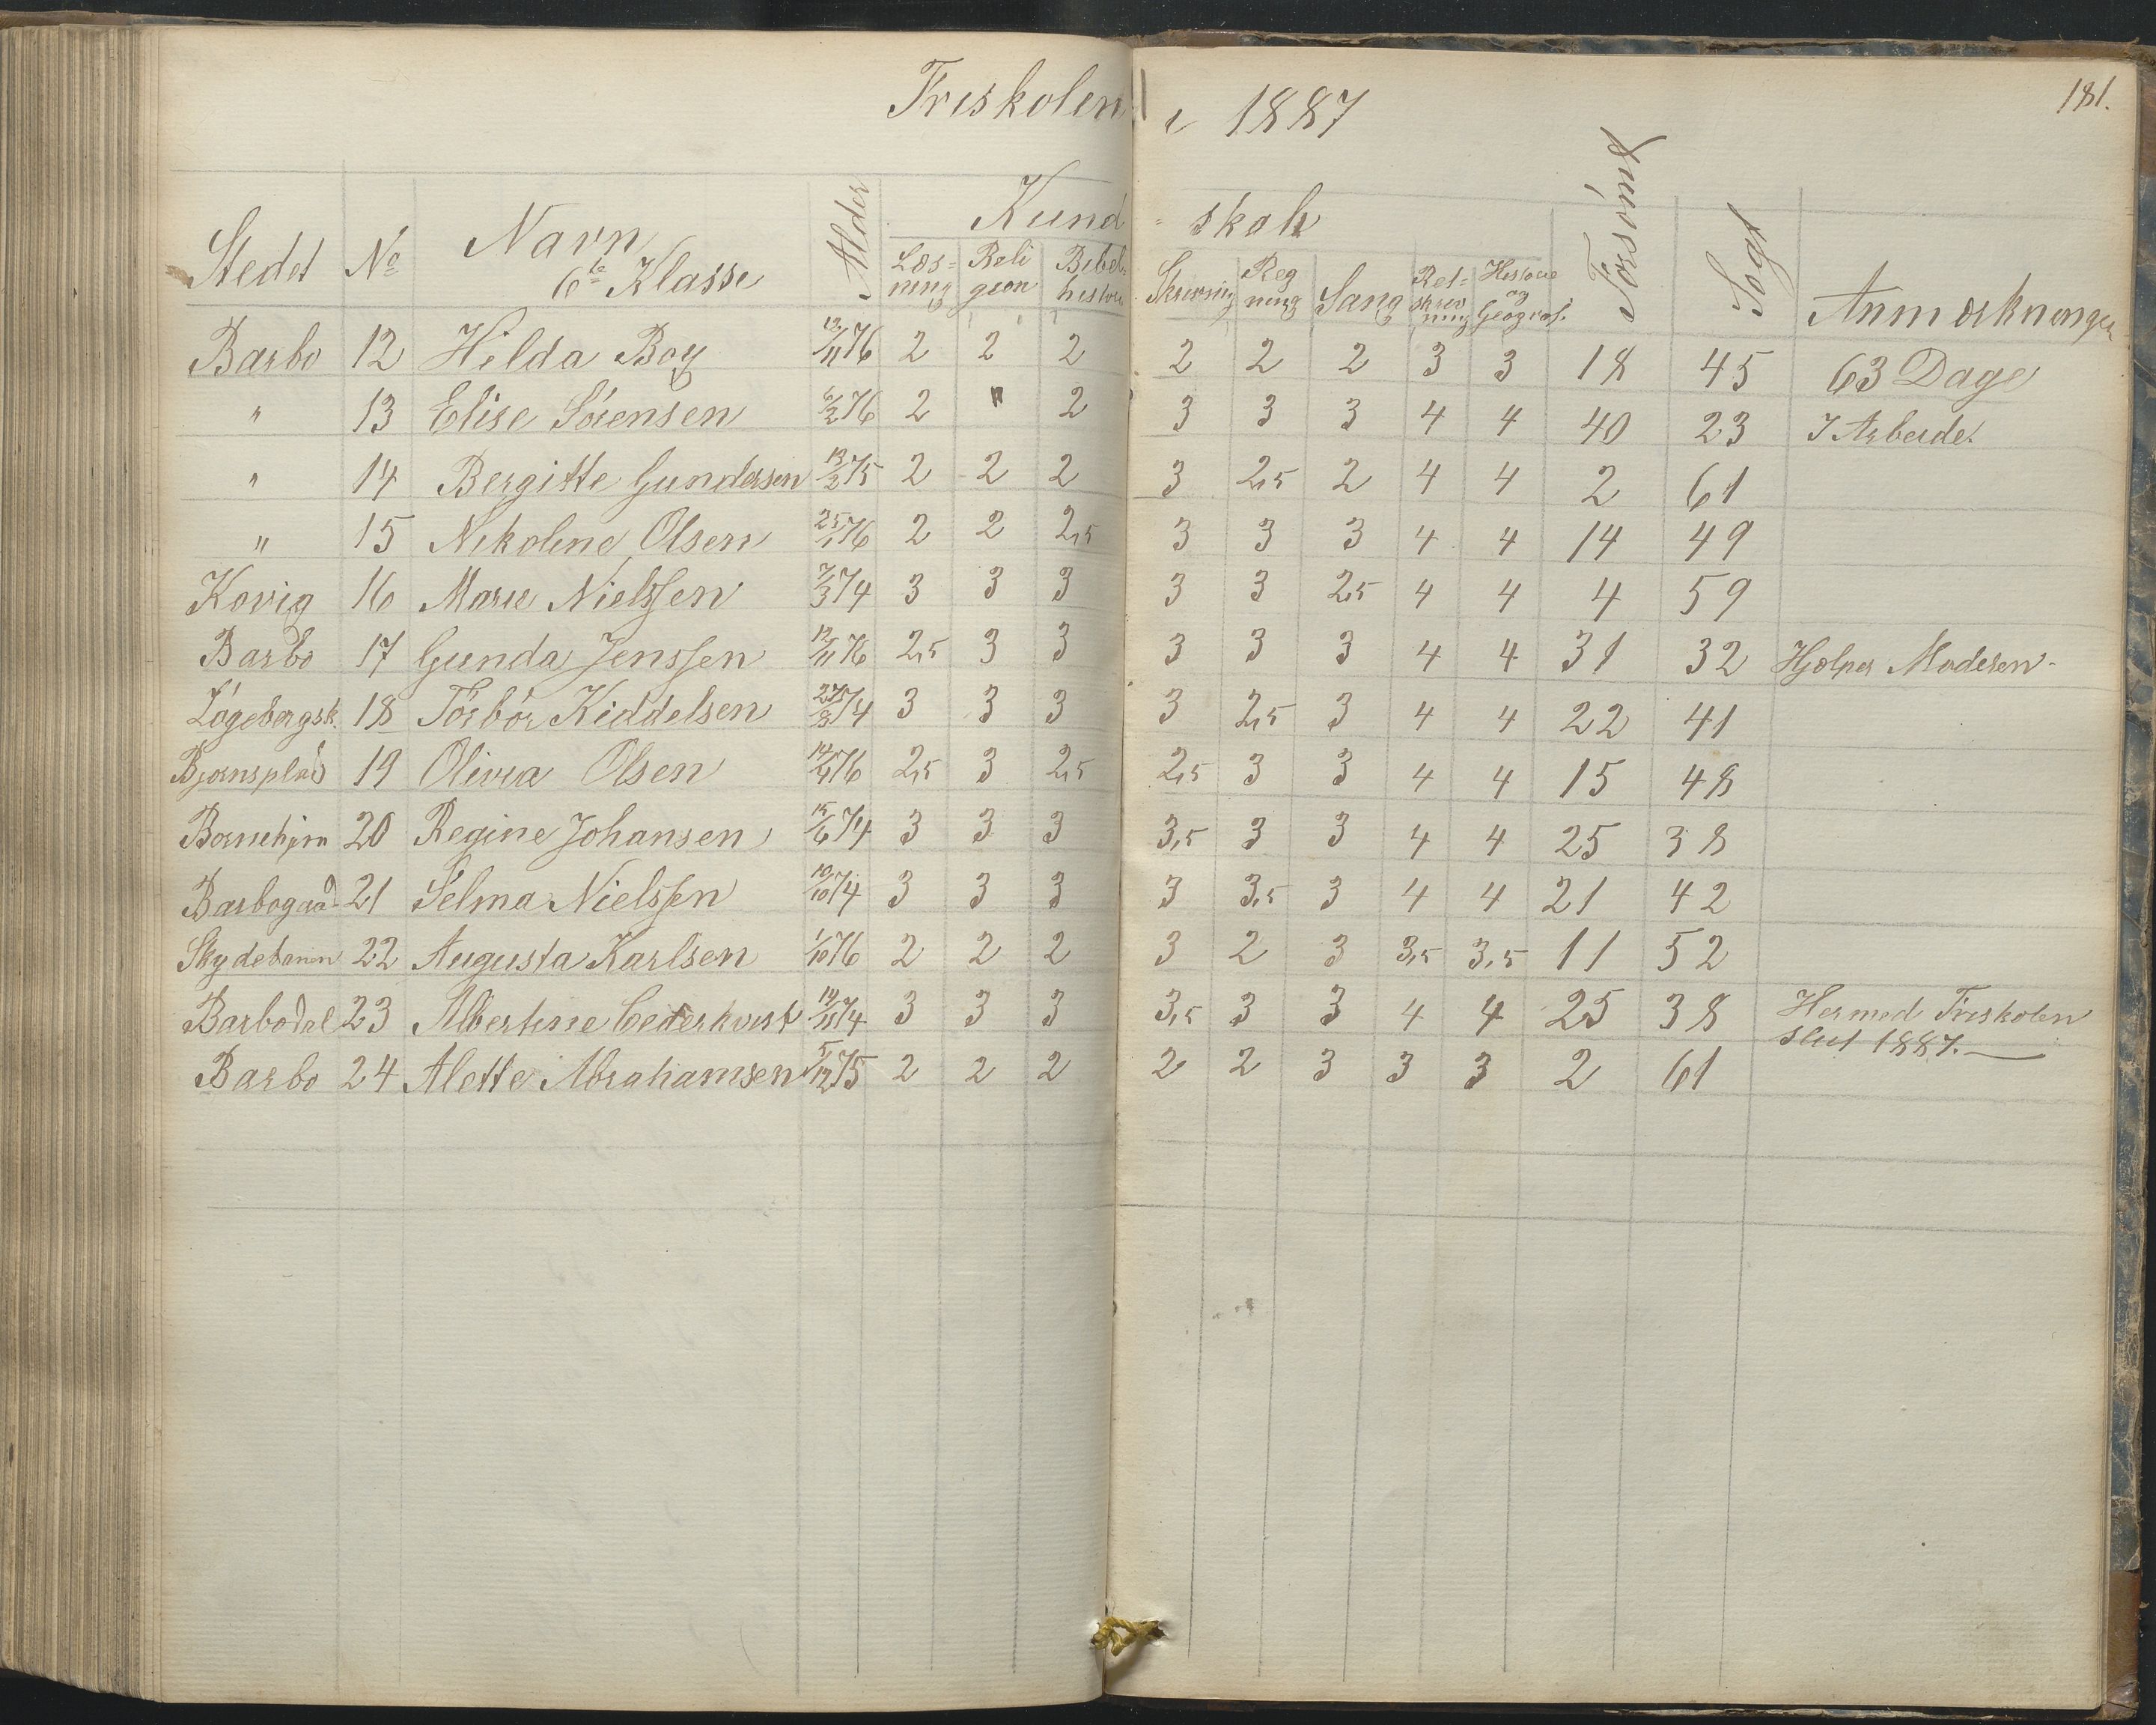 Friskolen i 1887
181.
Stedet No Navn Alder Kund- skab Forsømt Søgt Anmærkninger
6te Klasse Læs= ning Reli gion Bibel= historie Skrivning Reg ning Sang Ret= skriv ning Historie og Geograf.
Barbo 12 Hilda Boy 12/11 76 2 2 2 2 2 2 3 3 18 45 63 Dage
" 13 Elise Sörensen 6/2 76 2 " 2 3 3 3 4 4 40 23 I Arbeide.
" 14 Bergitte Gundersen 13/2 75 2 2 2 3 2,5 2 4 4 2 61
" 15 Nikoline Olsen 25/1 76 2 2 2,5 3 3 3 4 4 14 49
Kovig 16 Marie Nielssen 7/3 74 3 3 3 3 3 2,5 4 4 4 59
Barbo 17 Gunda Jenssen 12/11 76 2,5 3 3 3 3 3 4 4 31 32 Hjælper Moderen-
Lögebergsk. 18 Törbör Kiddelsen 27/8 74 3 3 3 3 2,5 3 4 4 22 41
Bjørnsplads 19 Olivia Olsen 14/4 76 2,5 3 2,5 2,5 3 3 4 4 15 48
Børnehjem 20 Regine Johansen 15/6 74 3 3 3 3,5 3 3 4 4 25 38
Barbogaad 21 Selma Nielssen 10/10 74 3 3 3 3 3,5 3 4 4 21 42
Skydebanen 22 Augusta Karlsen 1/10 76 2 2 2 3 2 3 3,5 3,5 11 52
Barbodal 23 Albertine Cederkvist 19/11 74 3 3 3 3,5 3 3 4 4 25 38 Hermed Friskolen
Barbo 24 Alette Abrahamsen 5/12 75 2 2 2 2 2 3 3 3 2 61 slut 1887.